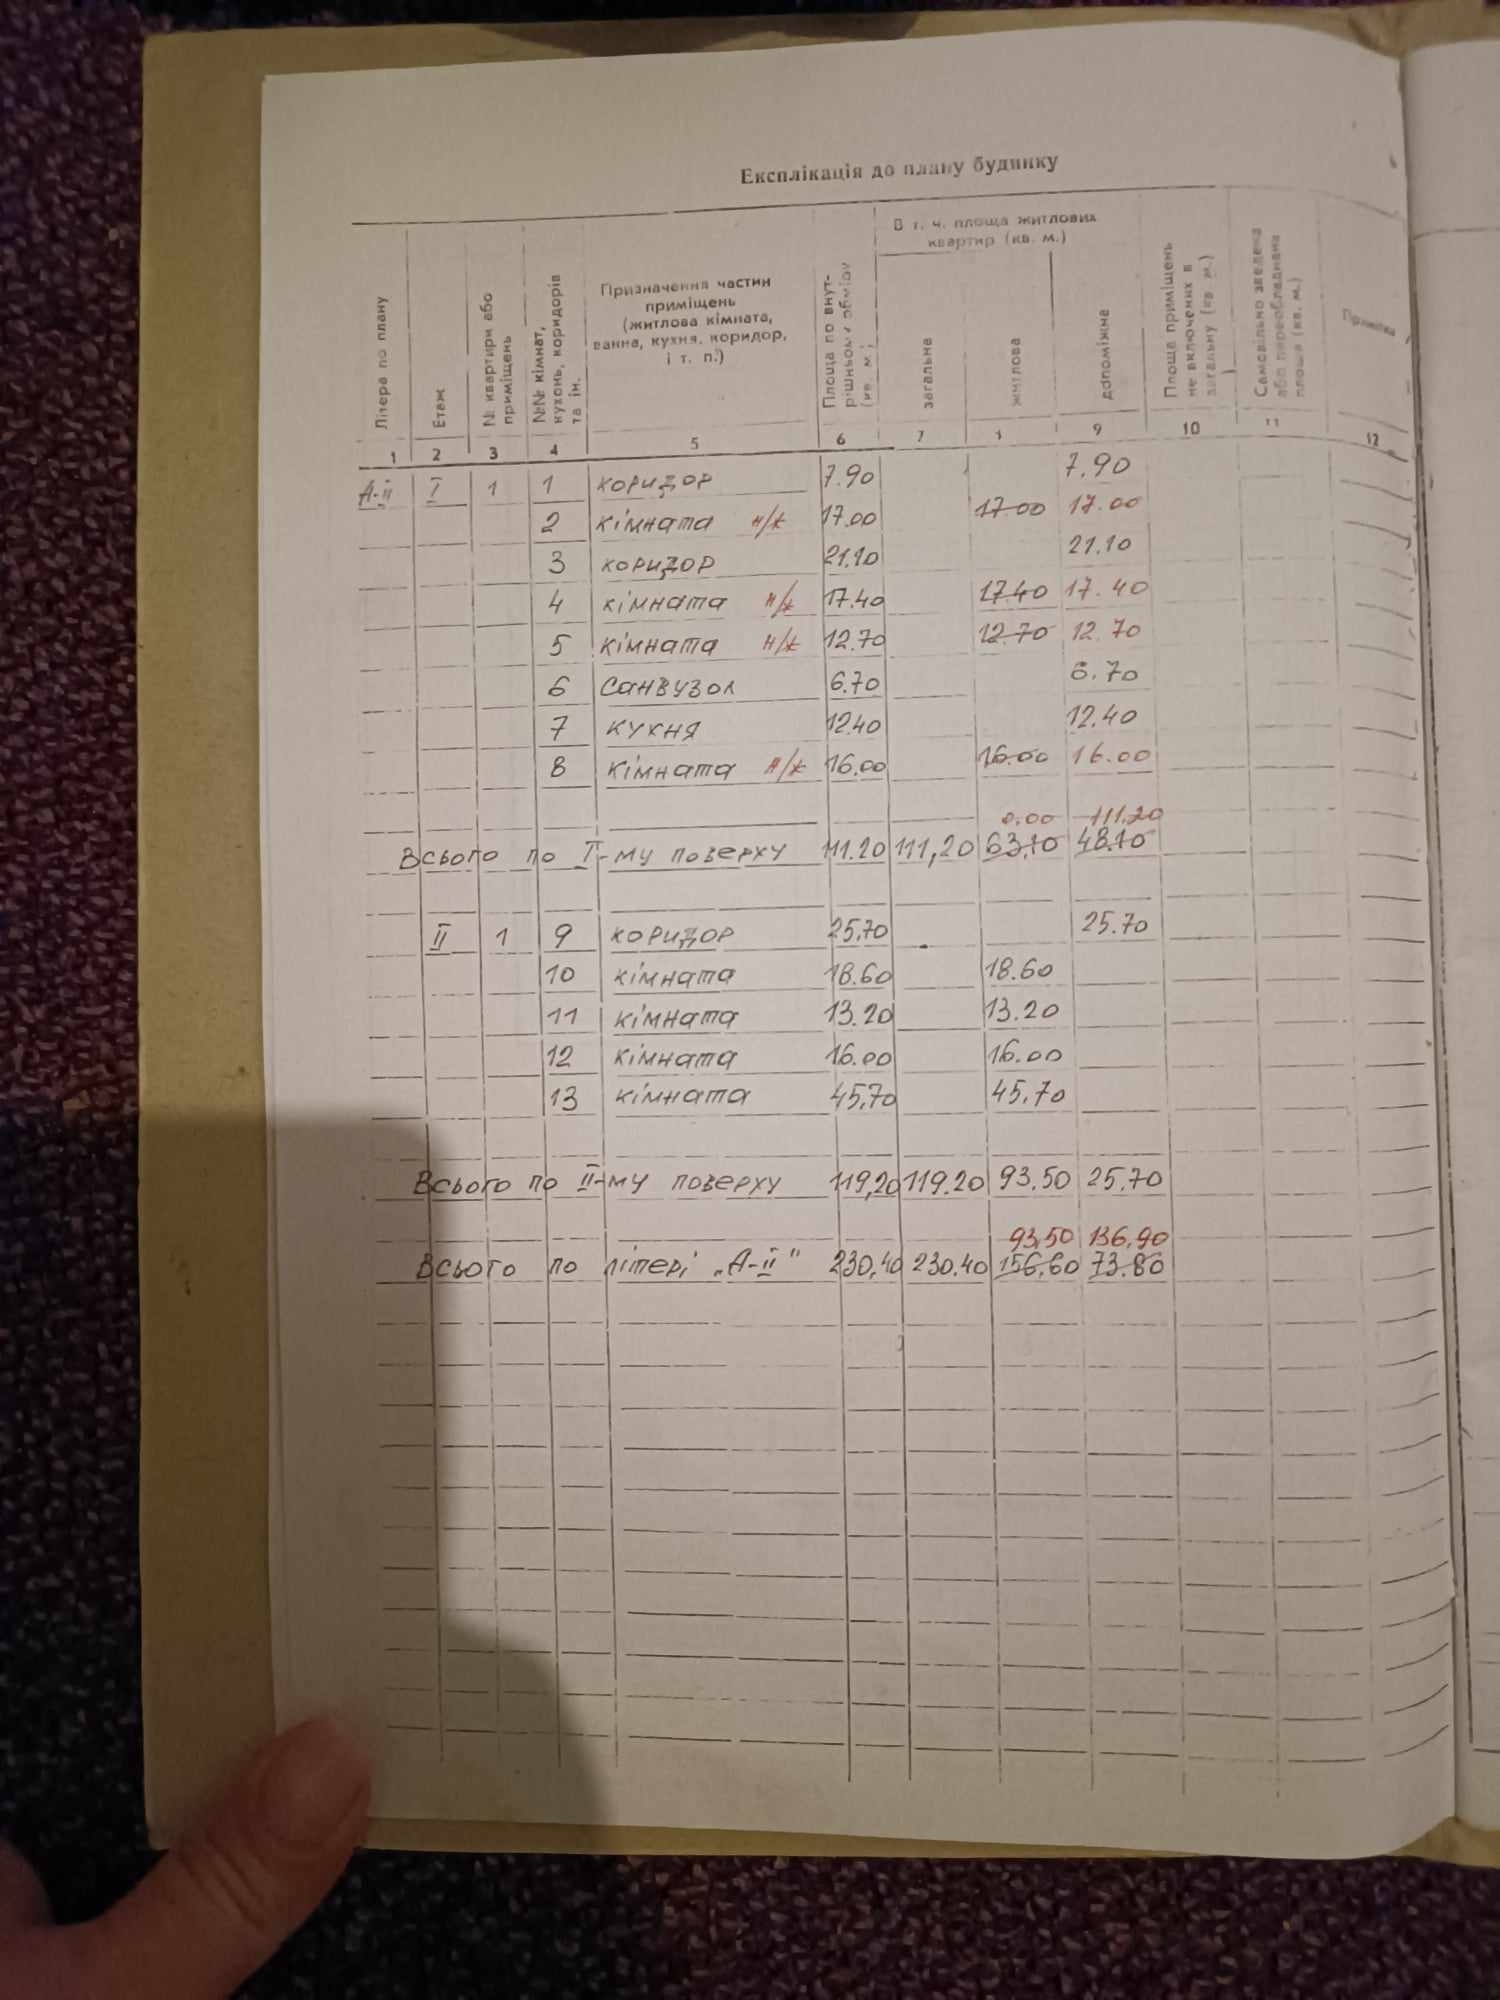 Експлікація до плану будинку
Літера по плану
Етаж
№ квартири або приміщень
№№ кімнат, кухонь, коридорів та ін.
Призначення частин приміщень (житлова кімната, ванна, кухня, коридор, і т. п.)
Площа по внутрішньому обміру (кв. м.)
В т. ч. площа житлових квартир (кв. м.)
загальна
житлова
допоміжна
Площа приміщень не включених в загальну (кв. м.)
Самовільно зведена або переобладнана площа (кв. м.)
1 2 3 4 5 6 7 9 10 11 12
А-II I 1 1 коридор 7.90 7.90
2 кімната н/ж 17.00 17.00 17.00
3 коридор 21.10 21.10
4 кімната н/ж 17.40 17.40 17.40
5 кімната н/ж 12.70 12.70 12.70
6 санвузол 6.70 6.70
7 кухня 12.40 12.40
8 кімната н/ж 16.00 16.00 16.00
0.00 111.20
Всього по I-му поверху 111.20 111,20 63,10 48.10
II 1 9 коридор 25,70 25.70
10 кімната 18.60 18.60
11 кімната 13.20 13.20
12 кімната 16.00 16.00
13 кімната 45,70 45,70
Всього по II-му поверху 119,20 119.20 93.50 25.70
93,50 136,90
Всього по літері „А-II" 230,40 230.40 156,60 73.80